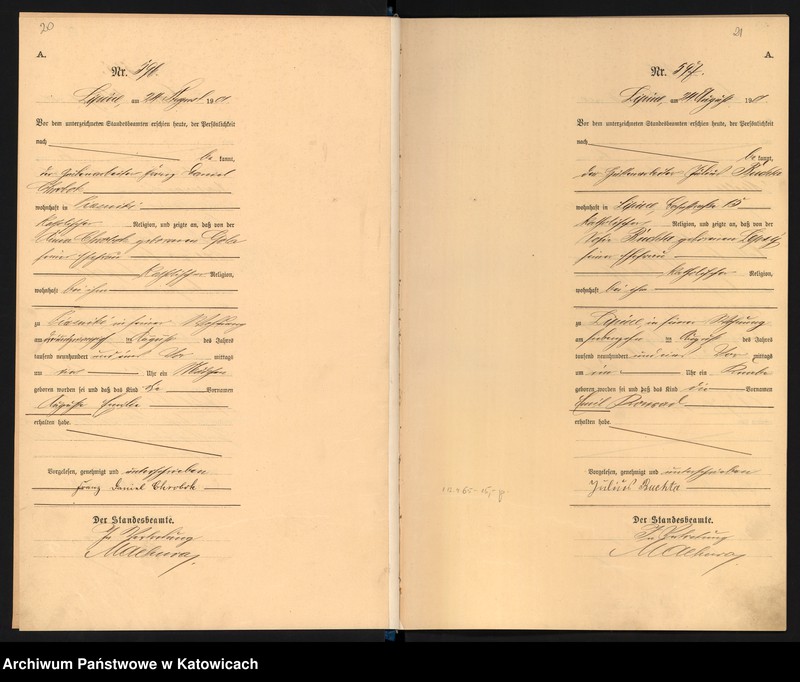 20
A.
Nr. 596.
Lipine, am 24 August 1901.
Vor dem unterzeichneten Standesbeamten erschien heute, der Persönlichkeit
nach
be kannt,
der Hüttenarbeiter Franz Daniel
Chrobok
wohnhaft in
katholischer Religion, und zeigte an, daß von der
Chrobok geborenen
seiner Ehefrau
katholischer Religion,
wohnhaft bei ihm
zu in seiner Wohnung
am August des Jahres
tausend neunhundert und eins Vor mittags
um Uhr ein Mädchen
geboren worden sei und daß das Kind die Vornamen
erhalten habe.
Vorgelesen, genehmigt und unterschrieben
Franz Daniel Chrobok
Der Standesbeamte.
In Vertretung
21
A.
Nr. 597.
Lipine, am 24 August 1901.
Vor dem unterzeichneten Standesbeamten erschien heute, der Persönlichkeit
nach
be kannt,
der Hüttenarbeiter Julius Buchta
wohnhaft in Lipine 15
katholischer Religion, und zeigte an, daß von der
Buchta geborenen
seiner Ehefrau
katholischer Religion,
wohnhaft bei ihm
zu Lipine, in seiner Wohnung
am August des Jahres
tausend neunhundert und eins Vor mittags
um Uhr ein Knabe
geboren worden sei und daß das Kind die Vornamen
Emil Konrad
erhalten habe.
Vorgelesen, genehmigt und unterschrieben
Julius Buchta
Der Standesbeamte.
In Vertretung
Archiwum Państwowe w Katowicach